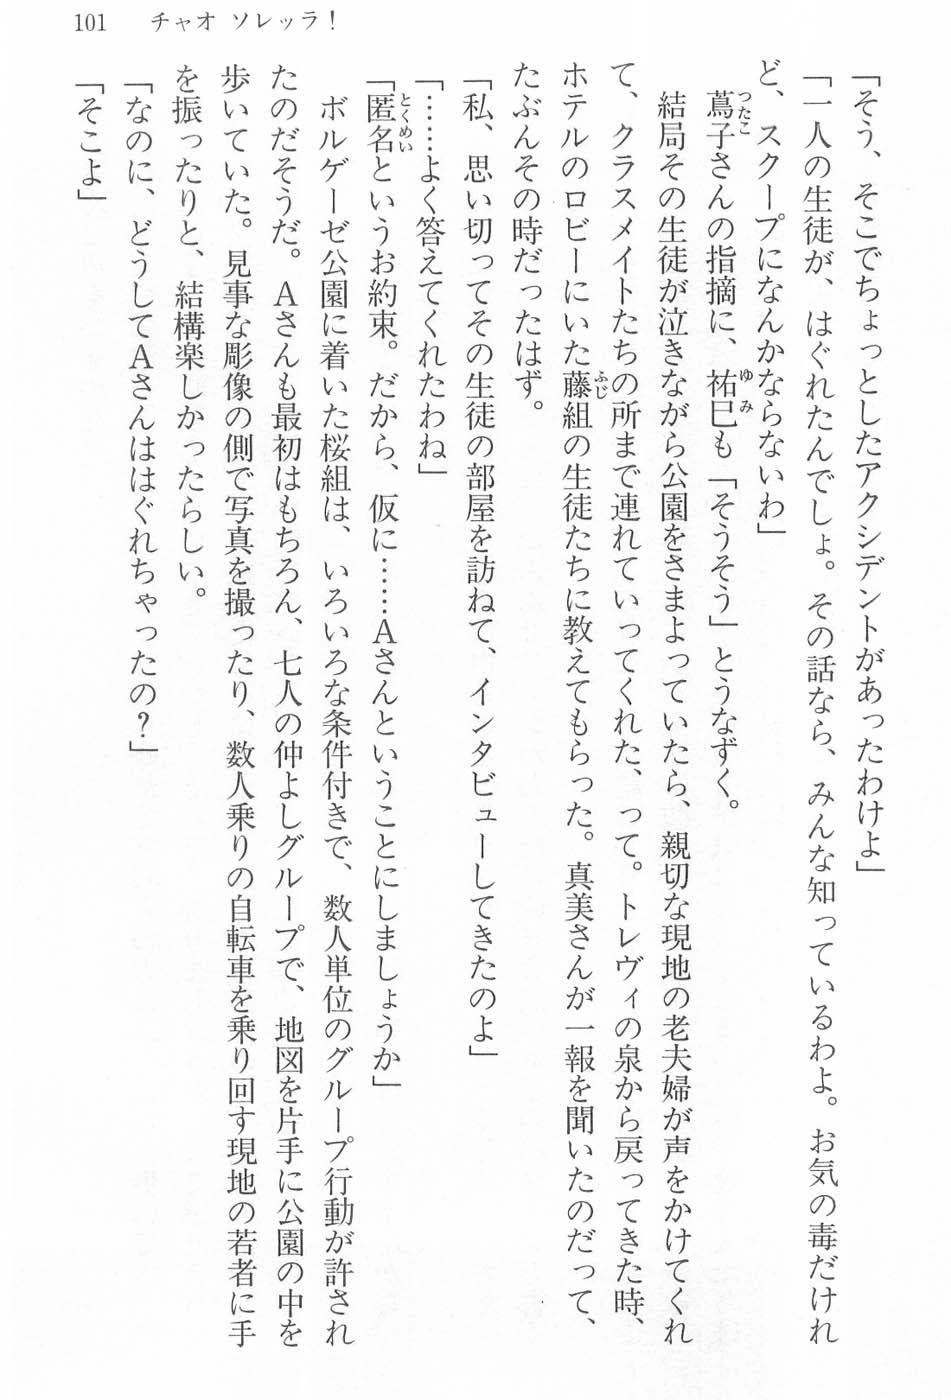 101　チャオ ソレッラ！
「そう、そこでちょっとしたアクシデントがあったわけよ」
「一人の生徒が、はぐれたんでしょ。その話なら、みんな知っているわよ。お気の毒だけれ
ど、スクープになんかならないわ」
　蔦子さんの指摘に、祐巳も「そうそう」とうなずく。
　結局その生徒が泣きながら公園をさまよっていたら、親切な現地の老夫婦が声をかけてくれ
て、クラスメイトたちの所まで連れていってくれた、って。トレヴィの泉から戻ってきた時、
ホテルのロビーにいた藤組の生徒たちに教えてもらった。真美さんが一報を聞いたのだって、
たぶんその時だったはず。
「私、思い切ってその生徒の部屋を訪ねて、インタビューしてきたのよ」
「……よく答えてくれたわね」
「匿名というお約束。だから、仮に……Ａさんということにしましょうか」
　ボルゲーゼ公園に着いた桜組は、いろいろな条件付きで、数人単位のグループ行動が許され
たのだそうだ。Ａさんも最初はもちろん、七人の仲よしグループで、地図を片手に公園の中を
歩いていた。見事な彫像の側で写真を撮ったり、数人乗りの自転車を乗り回す現地の若者に手
を振ったりと、結構楽しかったらしい。
「なのに、どうしてＡさんははぐれちゃったの？」
「そこよ」